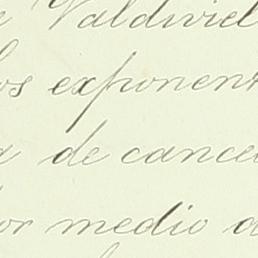 Valdivie
os exponent
de cance
or medio d